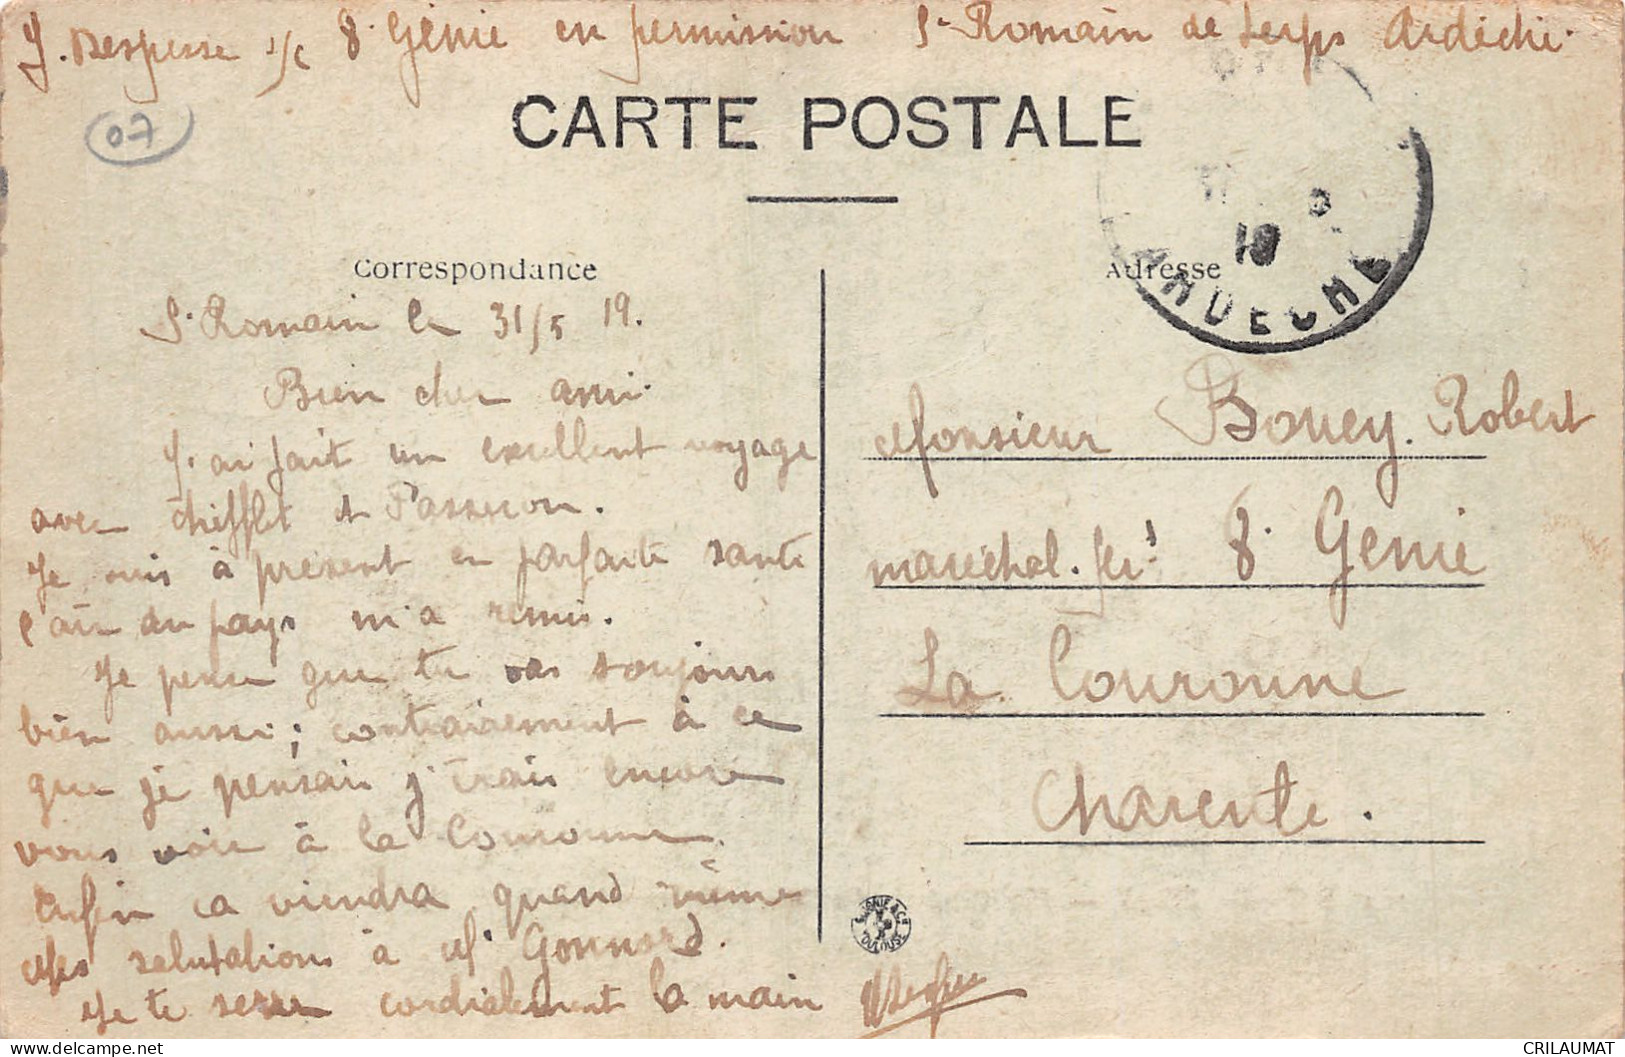 J. Despesse s/c 8e Génie en permission St Romain de Lerps Ardèche.
07
CARTE POSTALE
19
ARDECHE
Correspondance
Adresse
St Romain le 31/5 19.
Bien cher ami.
J'ai fait un excellent voyage
avec Chifflet et Passeron.
Je suis à présent en parfaite santé
l'air du pays m'a remis.
Je pense que tu vas toujours
bien aussi; contrairement à ce
que je pensais j'irais encore
vous voir à la Couronne.
Enfin ca viendra quand même
Mes salutations à Mr Gonnord.
Je te serre cordialement la main
Despesse
Monsieur Bouey. Robert
maréchal. fert 8e Génie
La Couronne
Charente.
TOULOUSE
CRILAUMAT